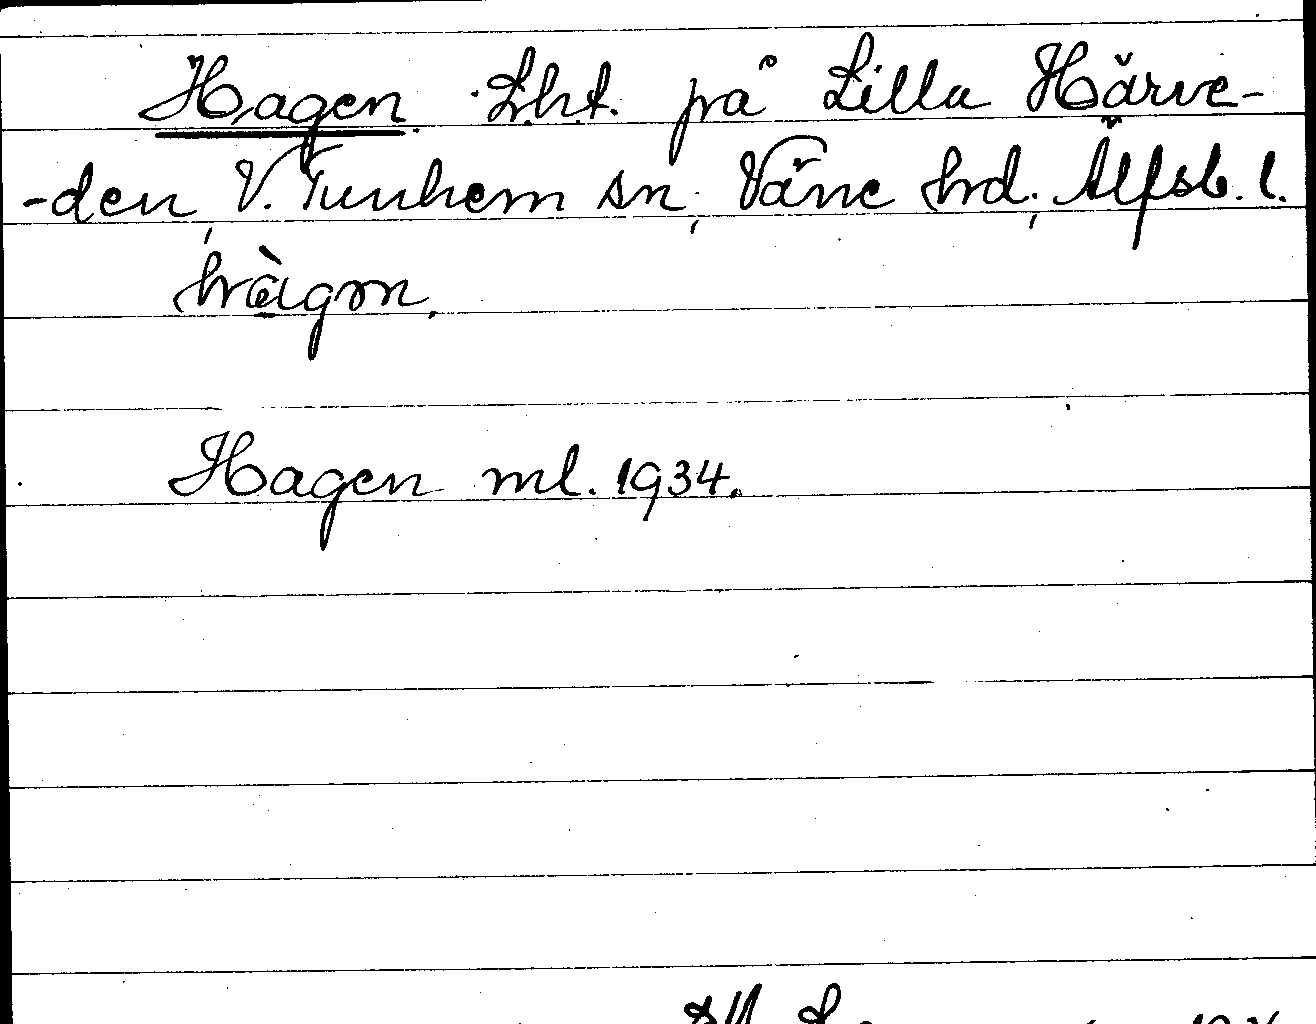 Hagen. Lht. på Lilla Härve-
-den, V. Tunhem sn, Väne hd, Älfsb. l.
hàgɷn.
Hagen ml. 1934.